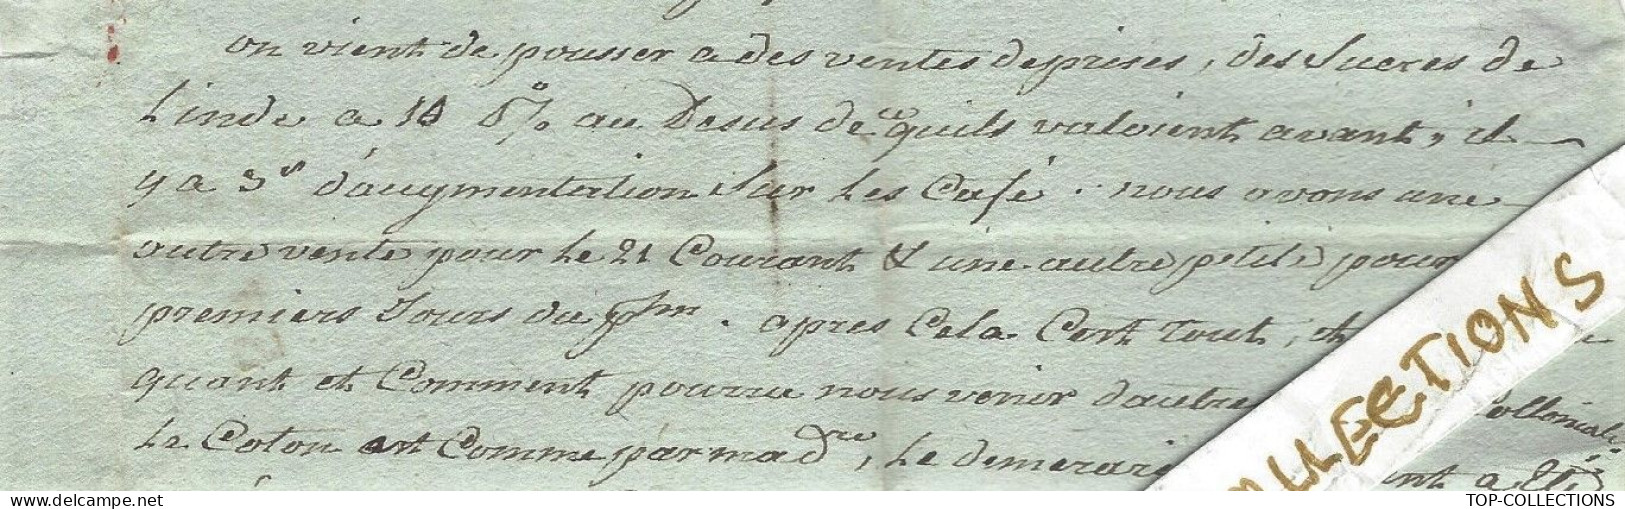 on vient de pousser a des ventes de prises, des Sucres de
Linde a 10 P% au Desus de ce quils valoient avant, il
y a 3s d'augmentation Sur Les Café. nous avons une
autre vente pour Le 21 Courant & une autre petite pour
premiers Jours du phm. apres Cela C'est tout, et
quant et Comment pourra nous venir d'autre Collonial
Le Coton est Comme par mad re, Le demerari
COLLECTIONS
TOP-COLLECTIONS